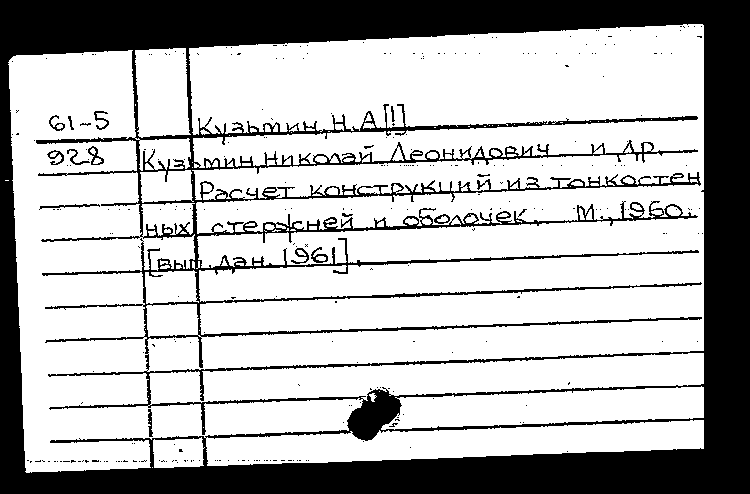 61-5 Кузьмин, Н.А[!]
928 Кузьмин, Николай Леонидович и др.
Расчет конструкций из тонкостен
ных стержней и оболочек. М., 1960.
[вып. дан. 1961].